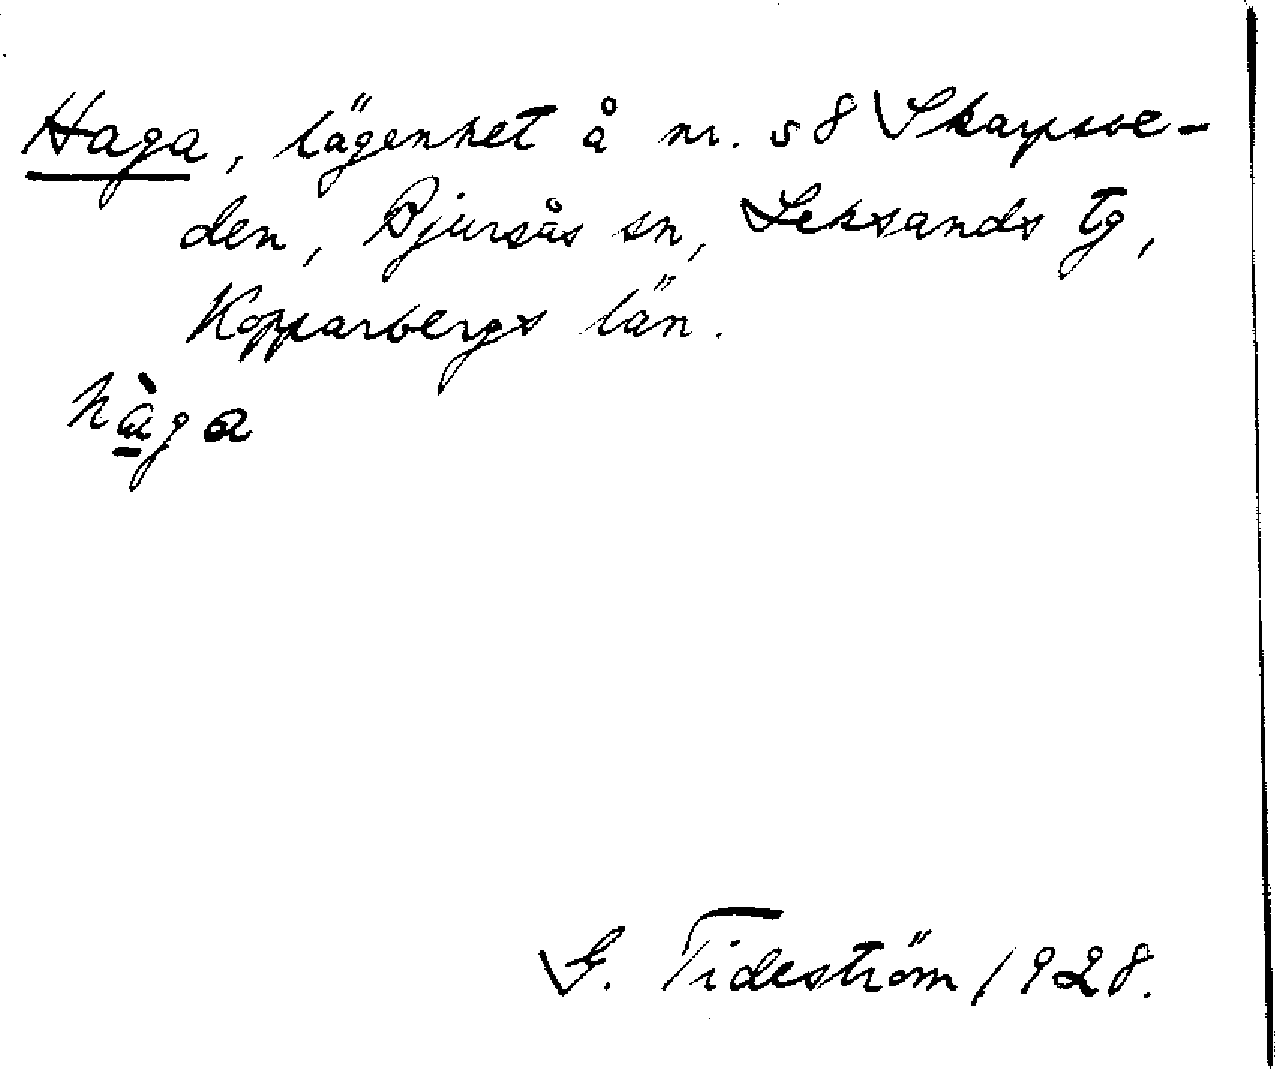 Haga, lägenhet å nr. s 8 Skarpsve-
den, Bjursås sn, Leksands tg,
Kopparbergs län.
hàga
G. Tideström 1928.